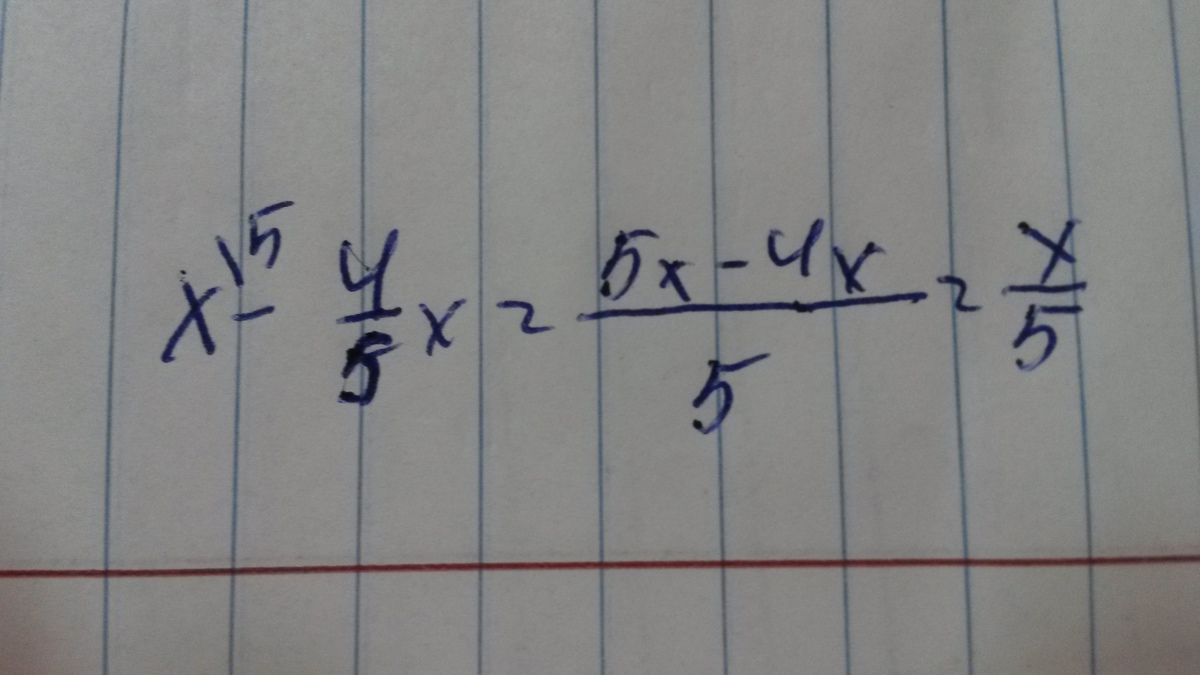 x\5 - 4/5 x = (5x - 4x)/5 = x/5